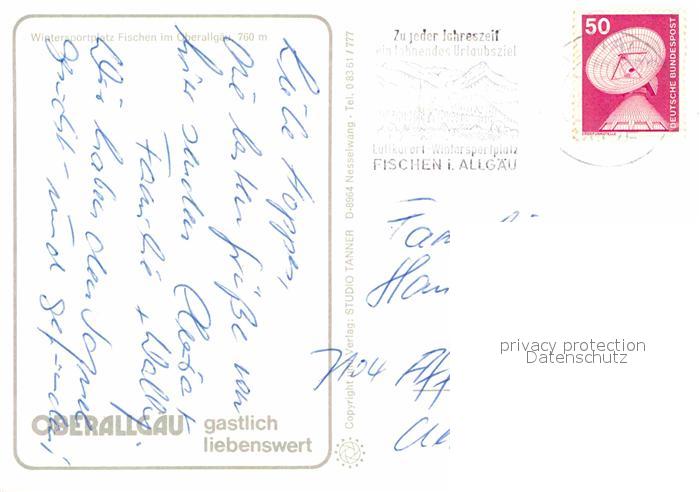 Wintersportplatz Fischen im Oberallgäu, 760 m
Liebe
Die besten Grüße von
hier senden
Familie + Wally.
Wir haben den Sonne
gesucht - und gefunden!
OBERALLGÄU gastlich
liebenswert
Copyright Verlag: STUDIO TANNER D-8964 Nesselwang · Tel. 0 83 61 / 777
Zu jeder Jahreszeit
ein lohnendes Urlaubsziel
Luftkurort-Wintersportplatz
FISCHEN i. ALLGÄU
50
DEUTSCHE BUNDESPOST
Fam
Han
privacy protection
Datenschutz